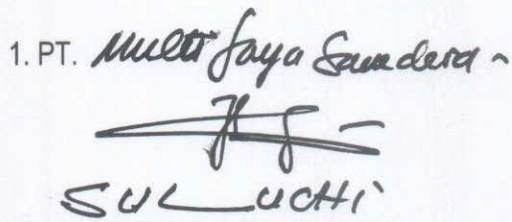 1. PT. Multi Jaya Samudera
SULUCHI